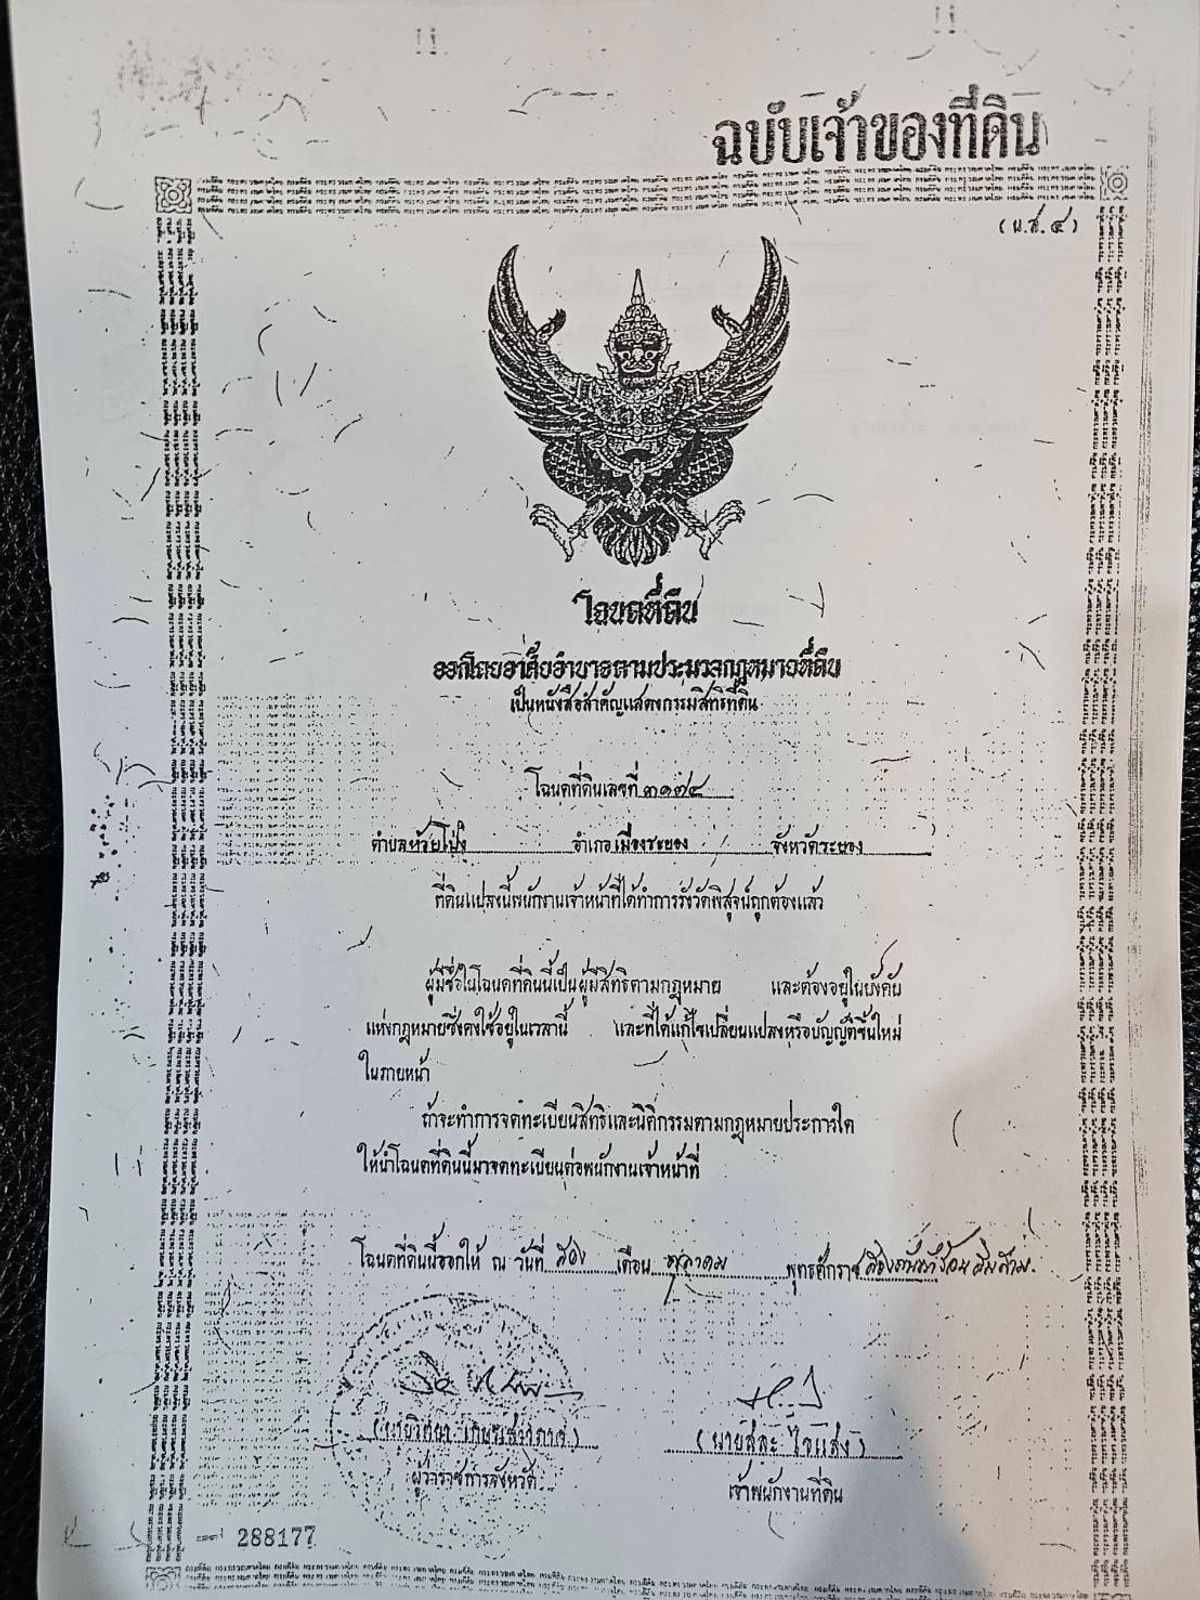 ฉบับเจ้าของที่ดิน
(น.ส.๔)
โฉนดที่ดิน
ออกโดยอาศัยอำนาจตามประมวลกฎหมายที่ดิน
เป็นหนังสือสำคัญแสดงกรรมสิทธิ์ที่ดิน
โฉนดที่ดินเลขที่ ๓๑๗๔
ตำบลห้วยโป่ง อำเภอเมืองระยอง จังหวัดระยอง
ที่ดินแปลงนี้พนักงานเจ้าหน้าที่ได้ทำการรังวัดพิสูจน์ถูกต้องแล้ว
ผู้มีชื่อในโฉนดที่ดินนี้เป็นผู้มีสิทธิตามกฎหมาย และต้องอยู่ในบังคับ
แห่งกฎหมายซึ่งคงใช้อยู่ในเวลานี้ และที่ได้แก้ไขเปลี่ยนแปลงหรือบัญญัติขึ้นใหม่
ในภายหน้า
ถ้าจะทำการจดทะเบียนสิทธิและนิติกรรมตามกฎหมายประการใด
ให้นำโฉนดที่ดินนี้มาจดทะเบียนต่อพนักงานเจ้าหน้าที่
โฉนดที่ดินนี้ออกให้ ณ วันที่ สอง เดือน ตุลาคม พุทธศักราช สองพันห้าร้อยสิบสาม
(นายวิทยา เกษรเสาวภาค) (นายสละ ใจแสง)
ผู้ว่าราชการจังหวัด เจ้าพนักงานที่ดิน
288177